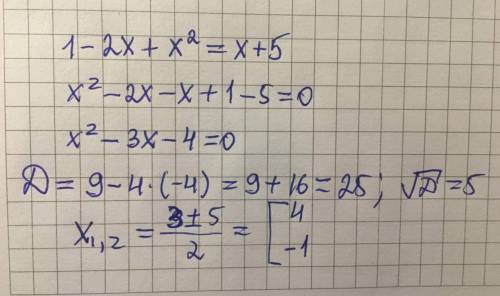 1 - 2x + x² = x + 5
x² - 2x - x + 1 - 5 = 0
x² - 3x - 4 = 0
Д = 9 - 4 · (-4) = 9 + 16 = 25; √Д = 5
x₁,₂ = (3 ± 5)/2 = [4
-1